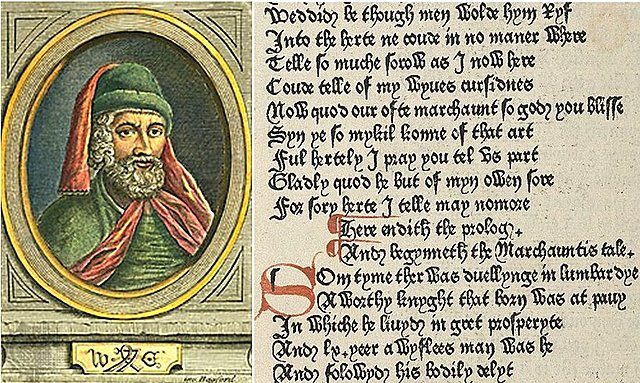 Weddid be though men wolde hym ryf
Into the herte ne coude in no maner where
Telle so muche sorow as I now here
Coude telle of my wyues cursidnes
Now quod our oste marchaunt so god you blisse
Syn ye so mykil konne of that art
Ful hertely I pray you tel vs part
Gladly quod he but of myn owen sore
For sory herte I telle may nomore
Here endith the prolog.
And begynneth the Marchauntis tale.
Som tyme ther was duellynge in lumbardye
A worthy knyght that born was at pauy
In whiche he liuyd in gret prosperyte
And lx. yeer a wyflees man was he
And folowyd his bodily delyt
W C
Geo. Bagford